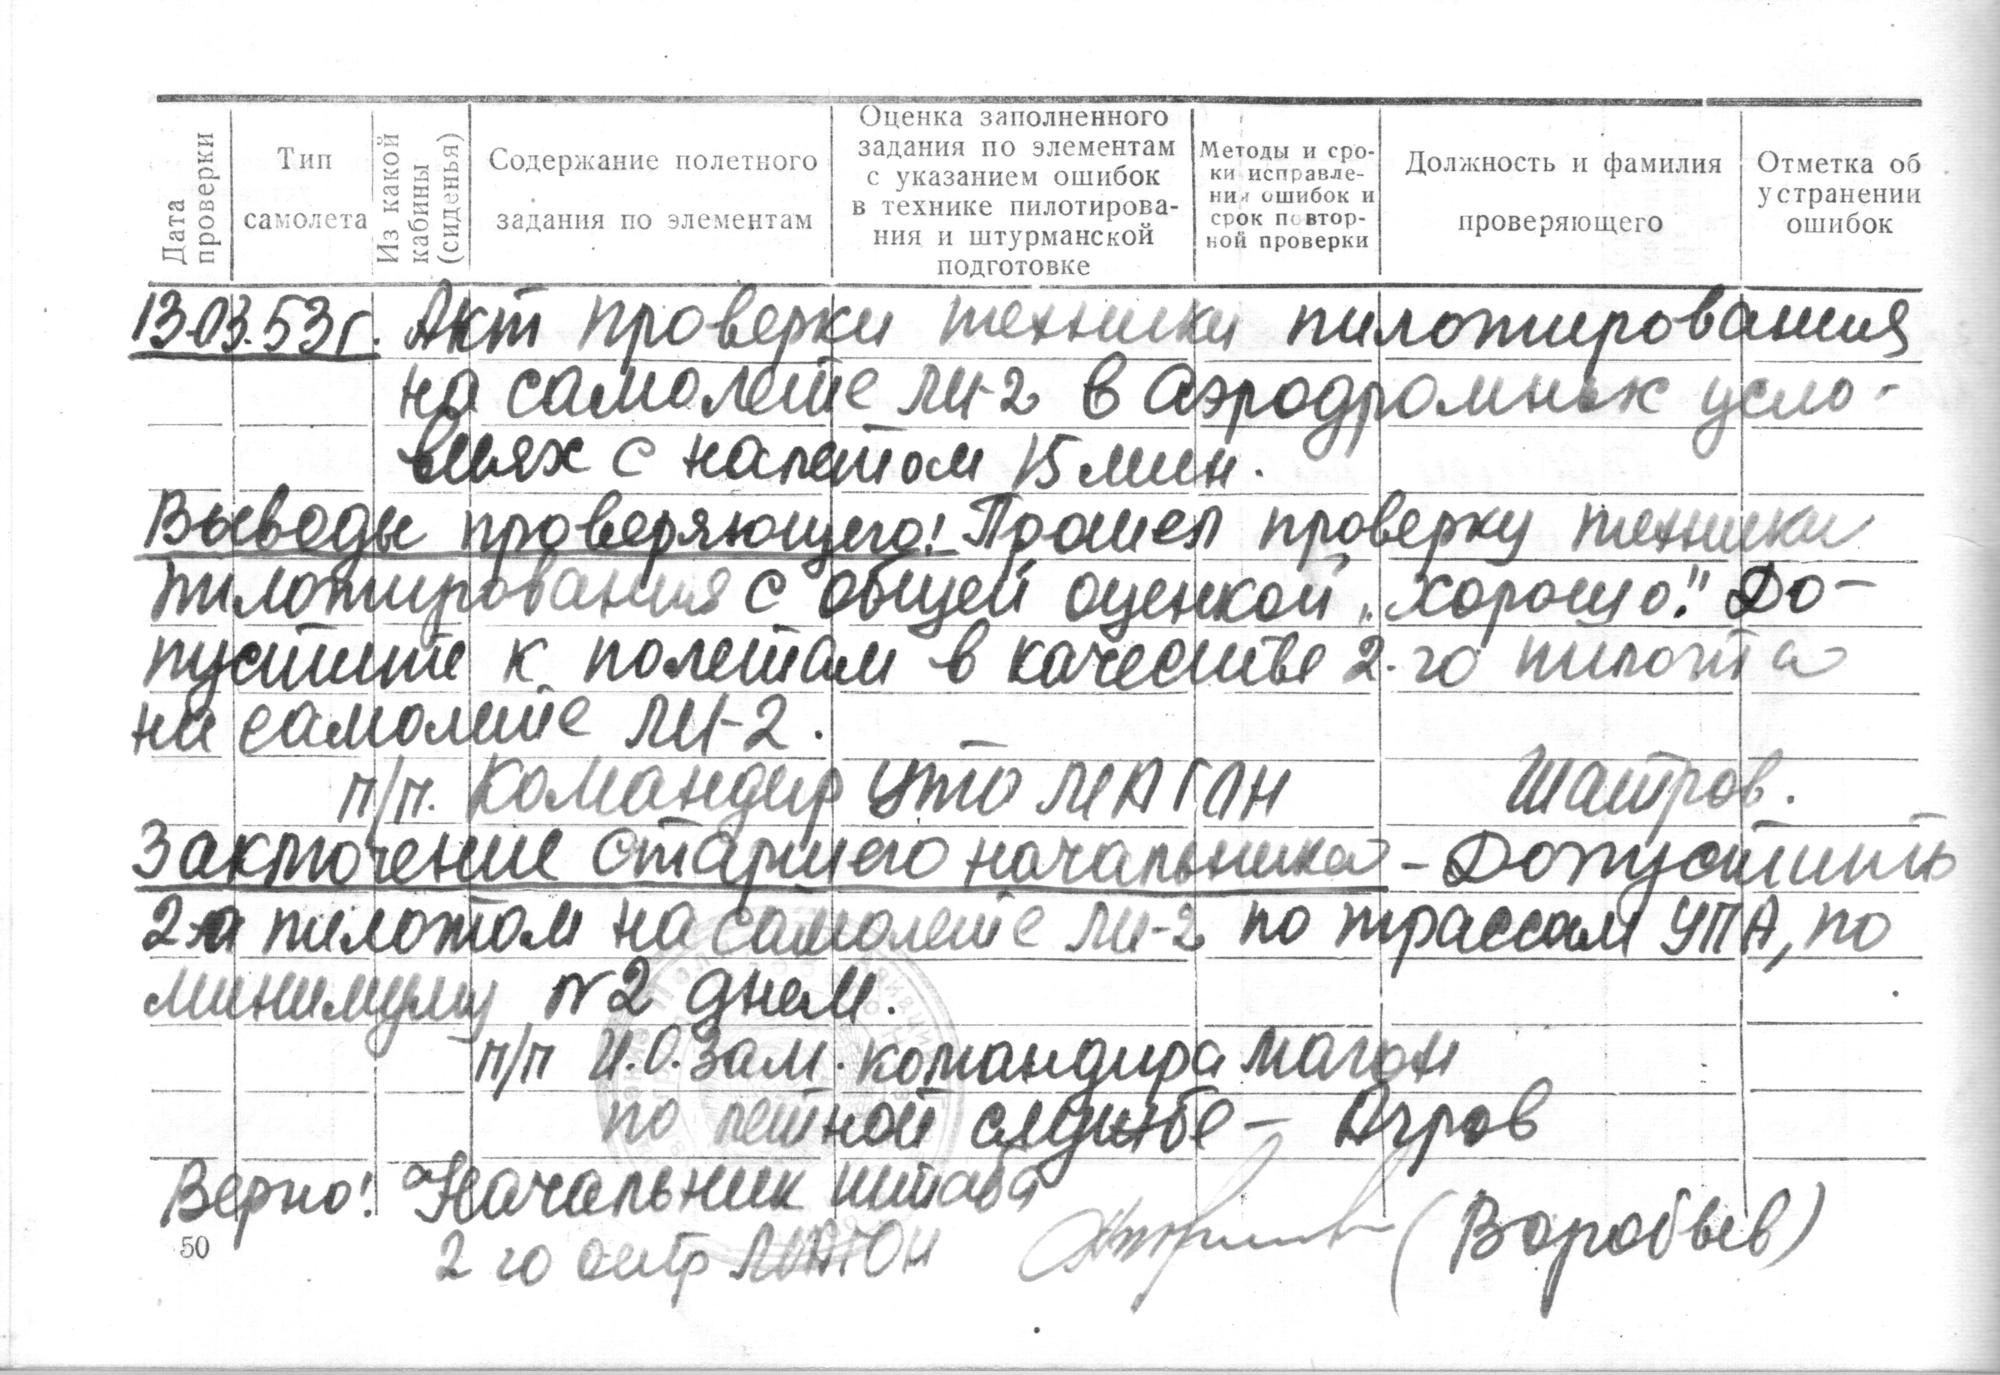 Дата проверки
Тип самолета
Из какой кабины (сиденья)
Содержание полетного задания по элементам
Оценка заполненного задания по элементам с указанием ошибок в технике пилотирова- ния и штурманской подготовке
Методы и сро- ки исправле- ния ошибок и срок повтор- ной проверки
Должность и фамилия проверяющего
Отметка об устранении ошибок
13.03.53г. Акт проверки техники пилотирования
на самолете ЛИ-2 в аэродромных усло-
виях с налетом 15 мин.
Выводы проверяющего! Прошел проверку техники
пилотирования с общей оценкой „хорошо." До-
пустите к полетам в качестве 2-го пилота
на самолете ЛИ-2.
п/п. Командир УТО МАГОН Шатров.
Заключение старшего начальника - Допустить
2-м пилотом на самолете ЛИ-2 по трассам УПА, по
минимуму №2 днем.
п/п И.О. Зам. командира МАГОН
по летной службе - Агров
Верно! Начальник штаба
2 го МАГОН (Воробьев)
50